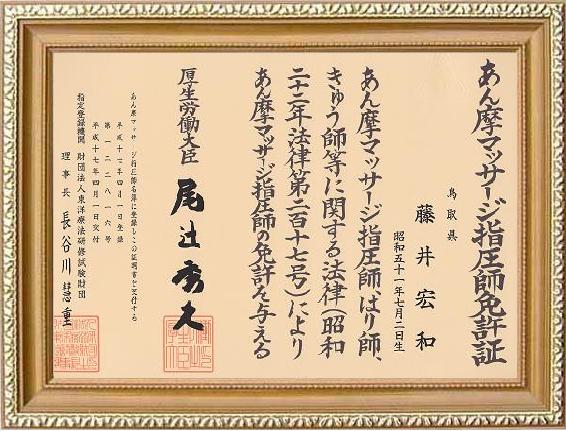 あん摩マッサージ指圧師免許証
鳥取県
藤井宏和
昭和五十一年七月二日生
あん摩マッサージ指圧師、はり師、
きゅう師等に関する法律（昭和
二十二年法律第二百十七号）により
あん摩マッサージ指圧師の免許を与える
厚生労働大臣 尾辻秀久
あん摩マッサージ指圧師名簿に登録しこの証明書を交付する
平成十七年四月一日登録
第一二二八一六号
平成十七年四月一日交付
指定登録機関 財団法人東洋療法研修試験財団
理事長 長谷川慧重